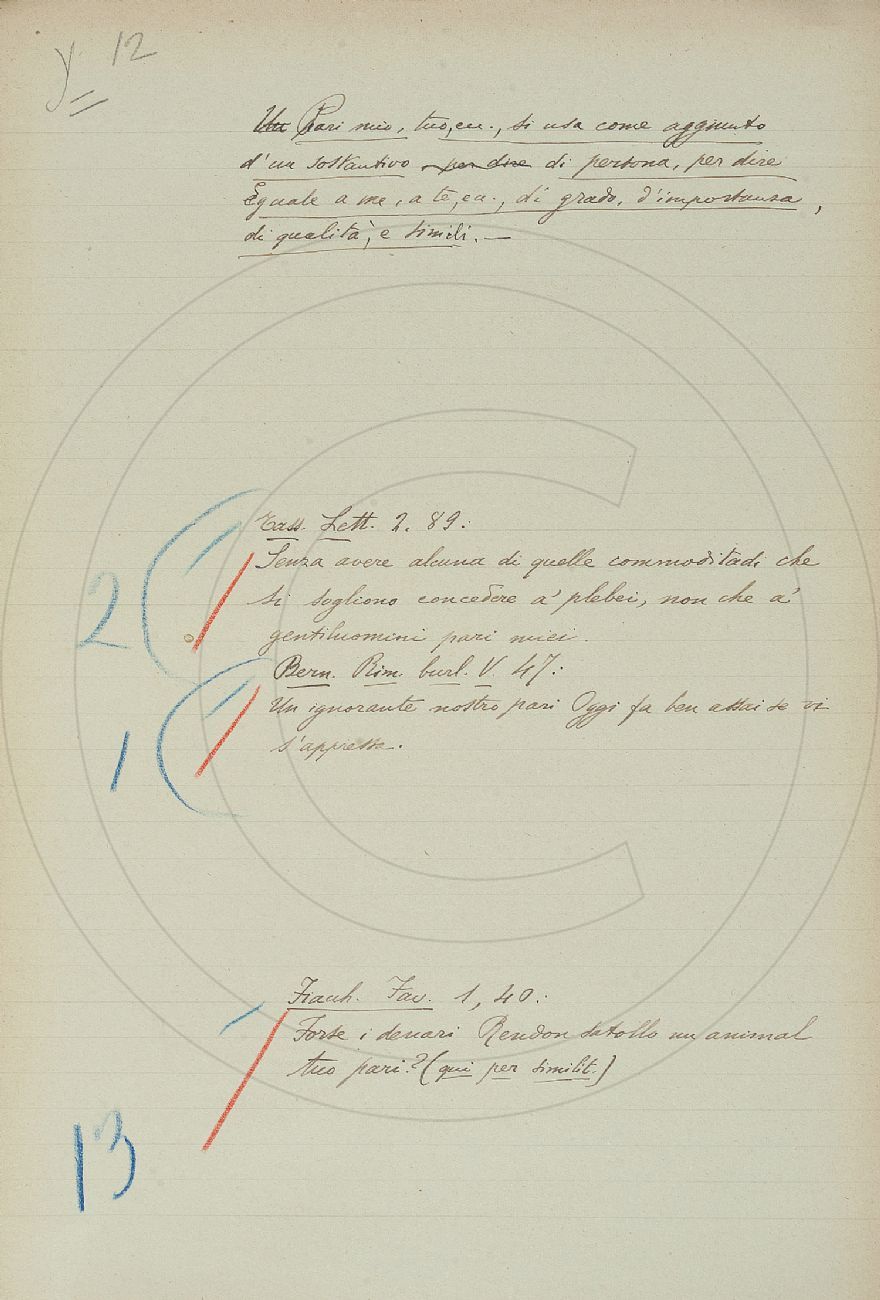 y 12
Un Pari mio, tuo, ec., si usa come aggiunto
d'un sostantivo per dire di persona, per dire
Eguale a me, a te, ec., di grado, d'importanza,
di qualità, e simili. —
Tass. Lett. 2. 89:
Senza avere alcuna di quelle commoditadi che
si sogliono concedere a' plebei, non che a'
gentiluomini pari miei.
2
Bern. Rim. burl. V. 47:
Un ignorante nostro pari Oggi fa ben assai se vi
s'appressa.
1
Fiacch. Fav. 1, 40:
Forse i denari Rendon satollo un animal
tuo pari? (qui per similit.)
13